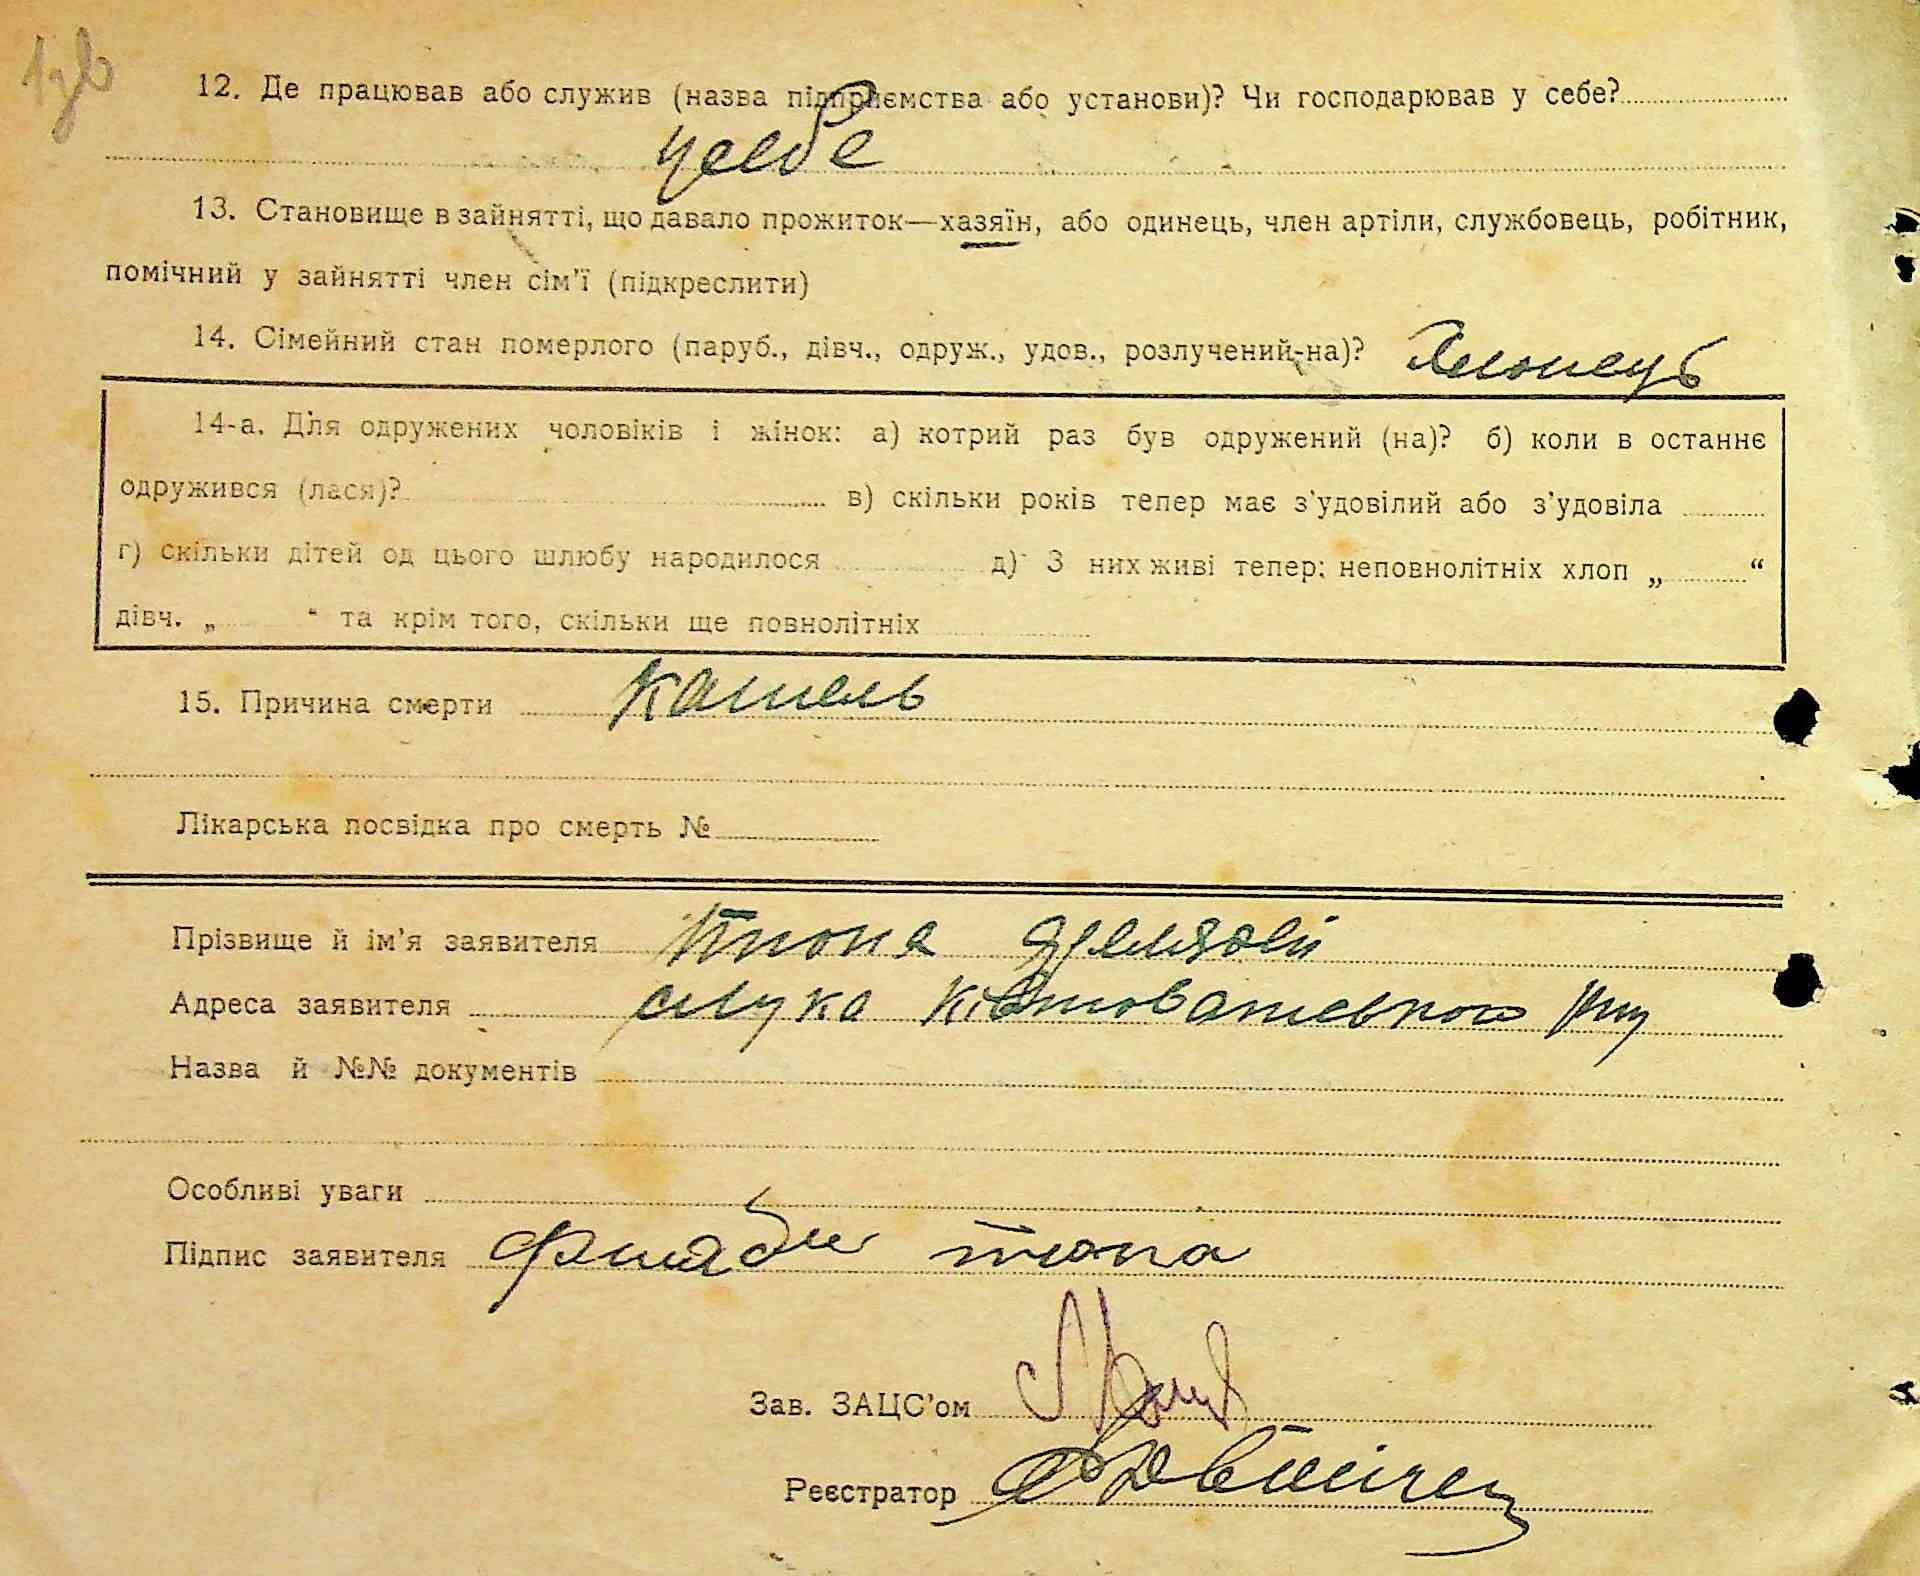 12. Де працював або служив (назва підприємства або установи)? Чи господарював у себе?
усебе
13. Становище в зайнятті, що давало прожиток—хазяїн, або одинець, член артіли, службовець, робітник,
помічний у зайнятті член сім'ї (підкреслити)
14. Сімейний стан померлого (паруб., дівч., одруж., удов., розлучений-на)? Хлопець
14-а. Для одружених чоловіків і жінок: а) котрий раз був одружений (на)? б) коли в останнє
одружився (лася)? в) скільки років тепер має з'удовілий або з'удовіла
г) скільки дітей од цього шлюбу народилося д) З них живі тепер: неповнолітніх хлоп „ “
дівч. „ “ та крім того, скільки ще повнолітніх
15. Причина смерти кашель
Лікарська посвідка про смерть №
Прізвище й ім'я заявителя
Адреса заявителя
Назва й №№ документів
Особливі уваги
Підпис заявителя
Зав. ЗАЦС'ом
Реєстратор